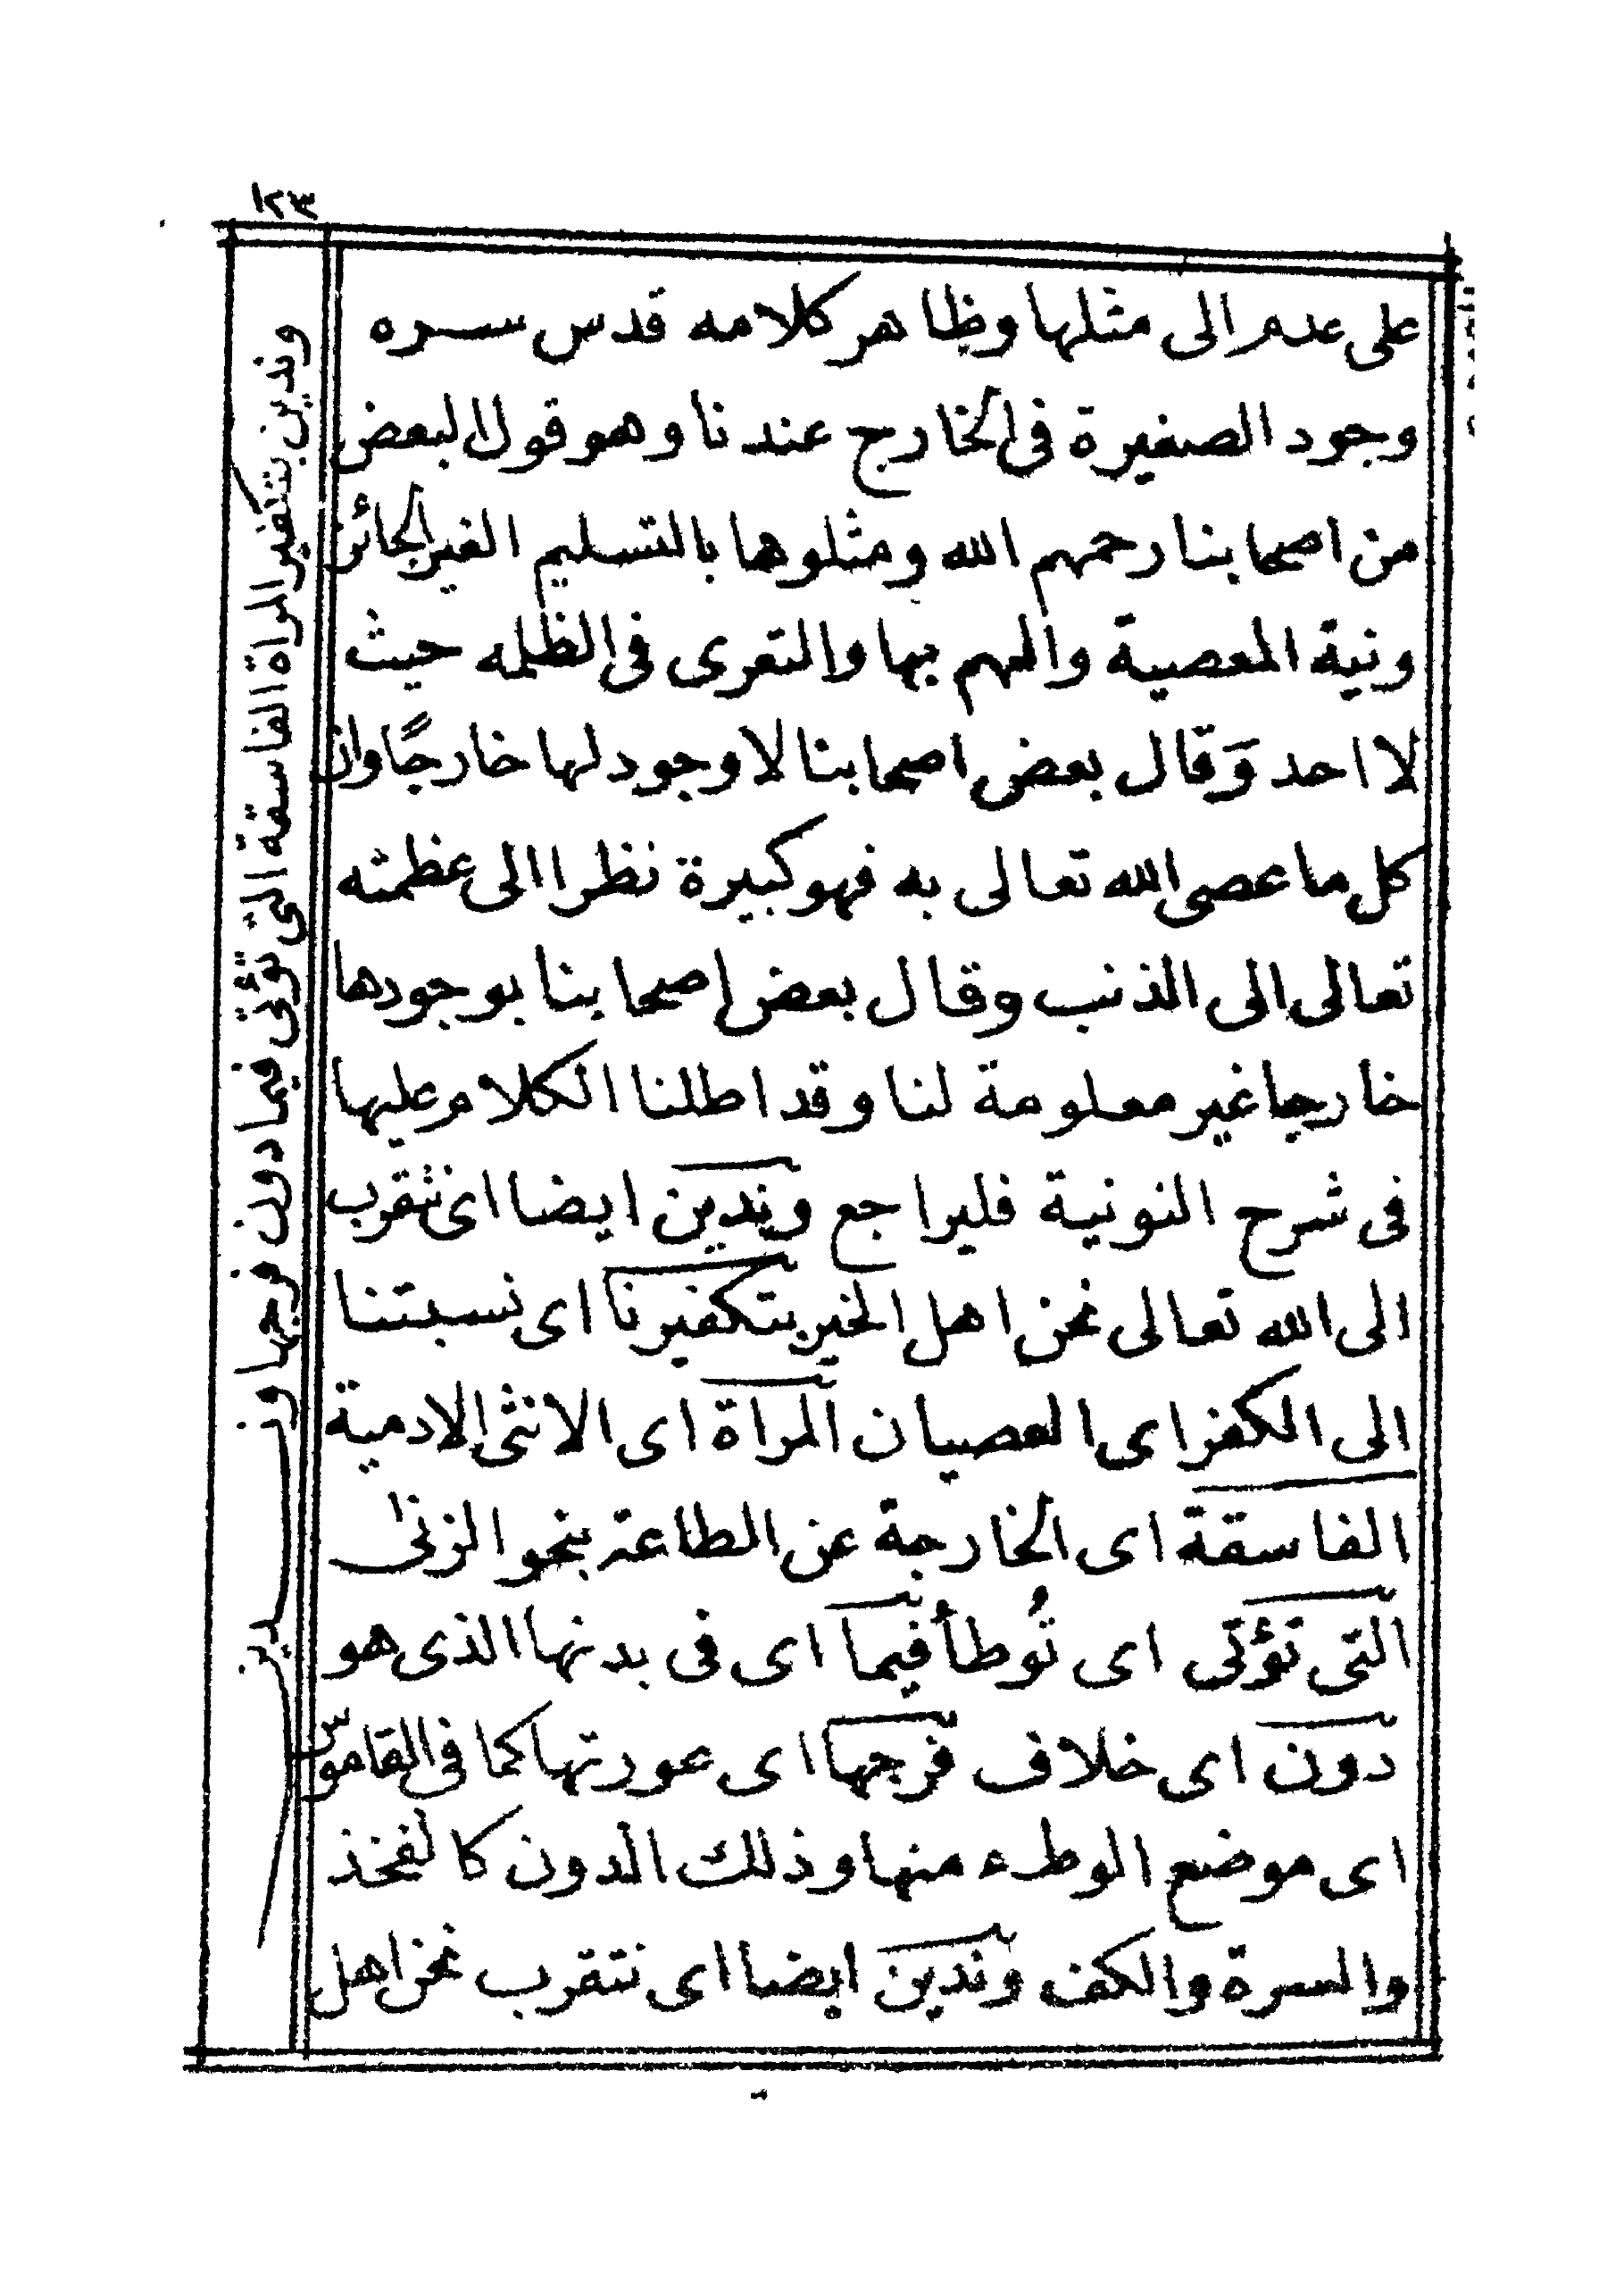 ١٢٣
على عدم الى مثلها وظاهر كلامه قدس سره
وجود الصغيرة فى الخارج عندنا وهو قول البعض
من اصحابنا رحمهم الله ومثلوها بالتسليم الغير الجائز
ونية المعصية والهم بها والتعرى فى الظلمه حيث
لا احد وَقال بعض اصحابنا لا وجود لها خارجًا وان
كل ما عصى الله تعالى به فهو كبيرة نظرا الى عظمته
تعالى الى الذنب وقال بعض اصحابنا بوجودها
خارجا غير معلومة لنا وقد اطلنا الكلام عليها
فى شرح النونية فليراجع وندين ايضا اى نتقرب
الى الله تعالى نحن اهل الخير بتكفيرنا اى نسبتنا
الى الكفر اى العصيان المراة اى الانثى الادمية
الفاسقة اى الخارجة عن الطاعة بنحو الزنى
التى تؤتى اى تُوطأ فيما اى فى بدنها الذى هو
دون اى خلاف فرجها اى عورتها كما فى القاموس
اى موضع الوطء منها وذلك الدون كالفخذ
والسرة والكف وندين ايضا اى نتقرب نحن اهل
وندين بتكفير المراة الفاسقة التى تؤتى فيما دون فرجها وندين